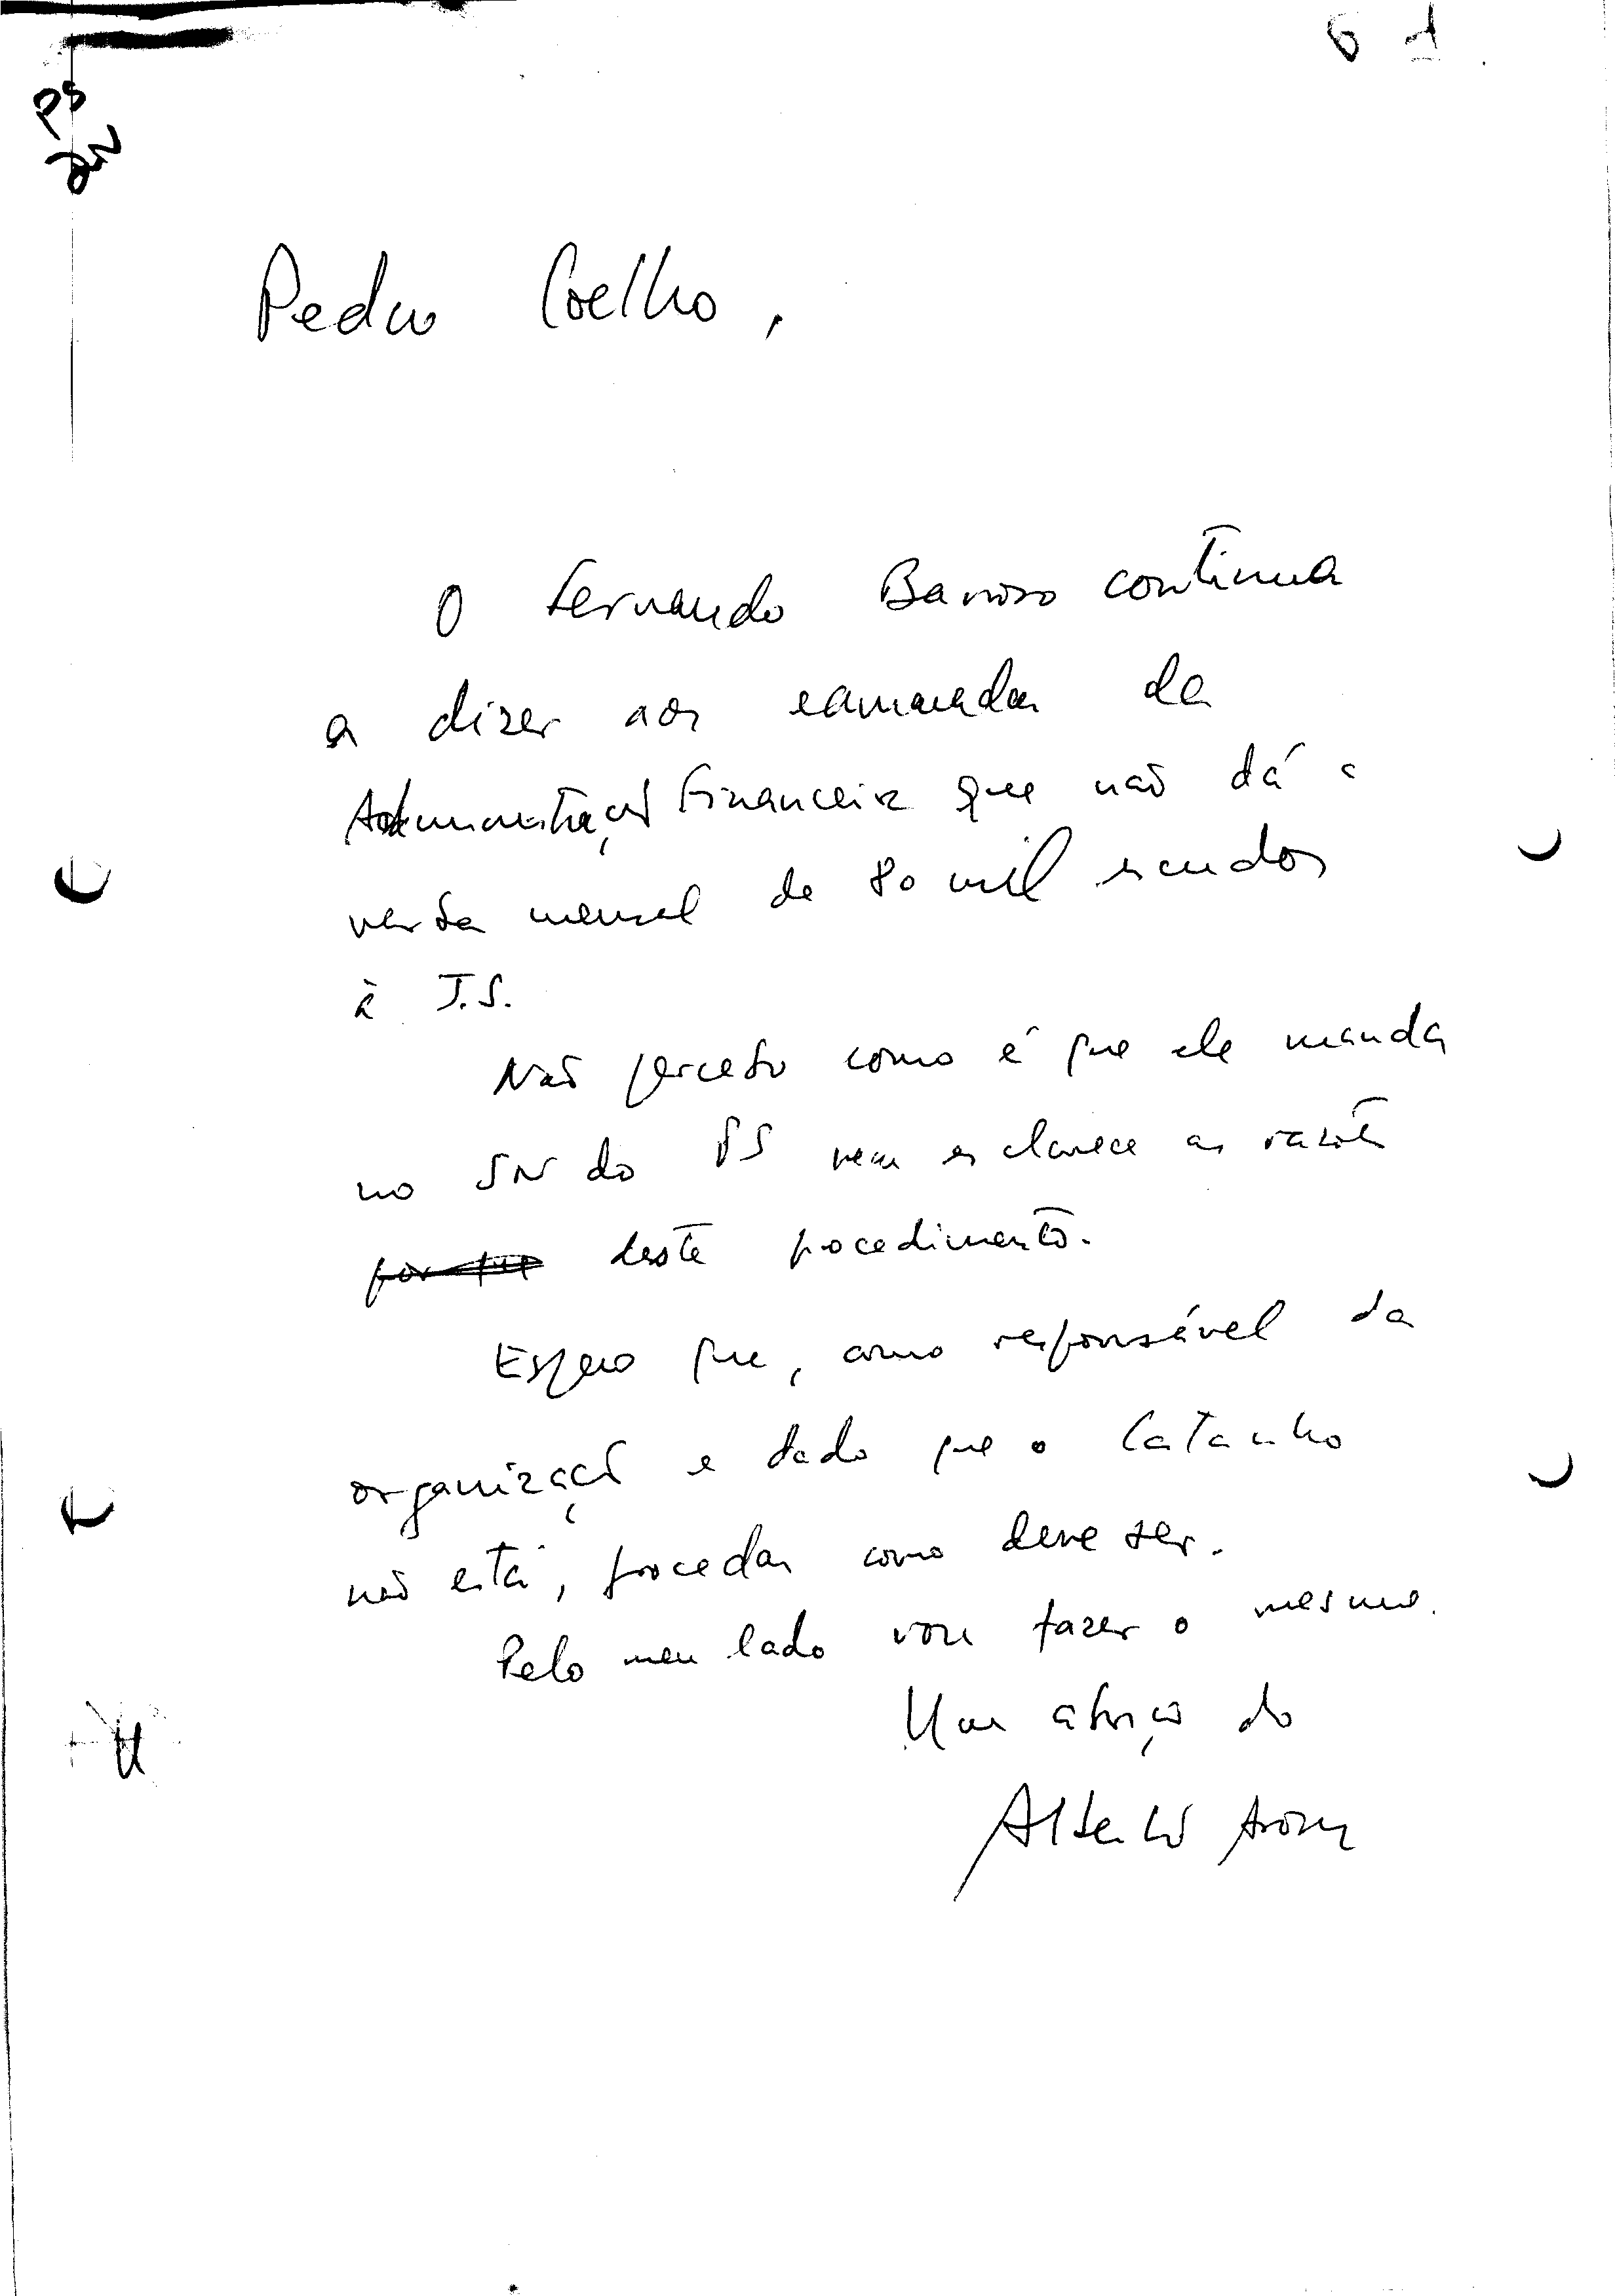 PS
Pedro Coelho,
O Fernando Barroso continua
a dizer aos camaradas da
Administração Financeira que não dá a
verba mensal de 80 mil escudos
à J.S.
Não percebo como é que ele manda
no SN do PS nem esclarece as razões
por que deste procedimento.
Espero que, como responsável da
organização e dado que o Catanho
não está, procedas como deve ser.
Pelo meu lado vou fazer o mesmo.
Um abraço do
Alberto